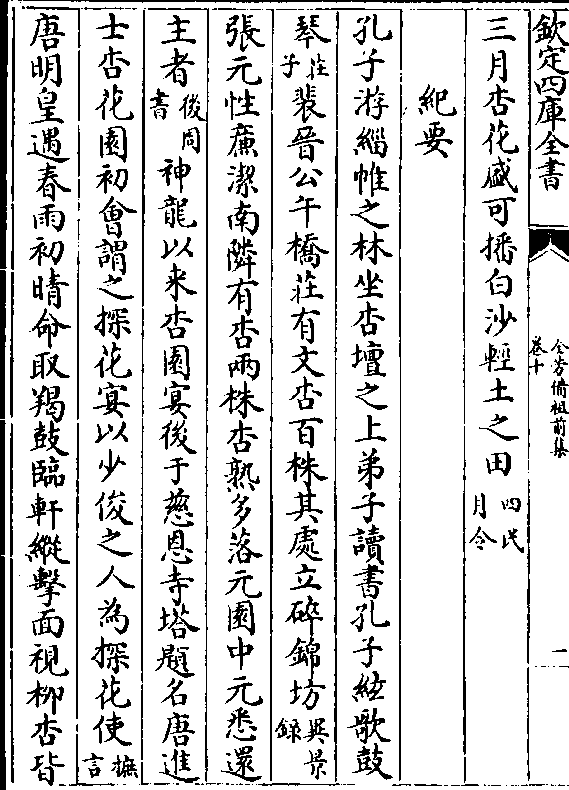 欽定四庫全書
全芳備祖前集
卷十
一
三月杏花盛可播白沙輕土之田四民月令
紀要
孔子游緇帷之林坐杏壇之上弟子讀書孔子絃歌鼓
琴莊子裴晉公午橋莊有文杏百株其處立碎錦坊異景錄
張元性㢘潔南隣有杏兩株杏熟多落元園中元悉還
主者後周書神龍以来杏園宴後于慈恩寺塔題名唐進
士杏花園初會謂之探花宴以少俊之人為探花使摭言
唐明皇遇春雨初晴命取羯鼓臨軒縱擊面視柳杏皆